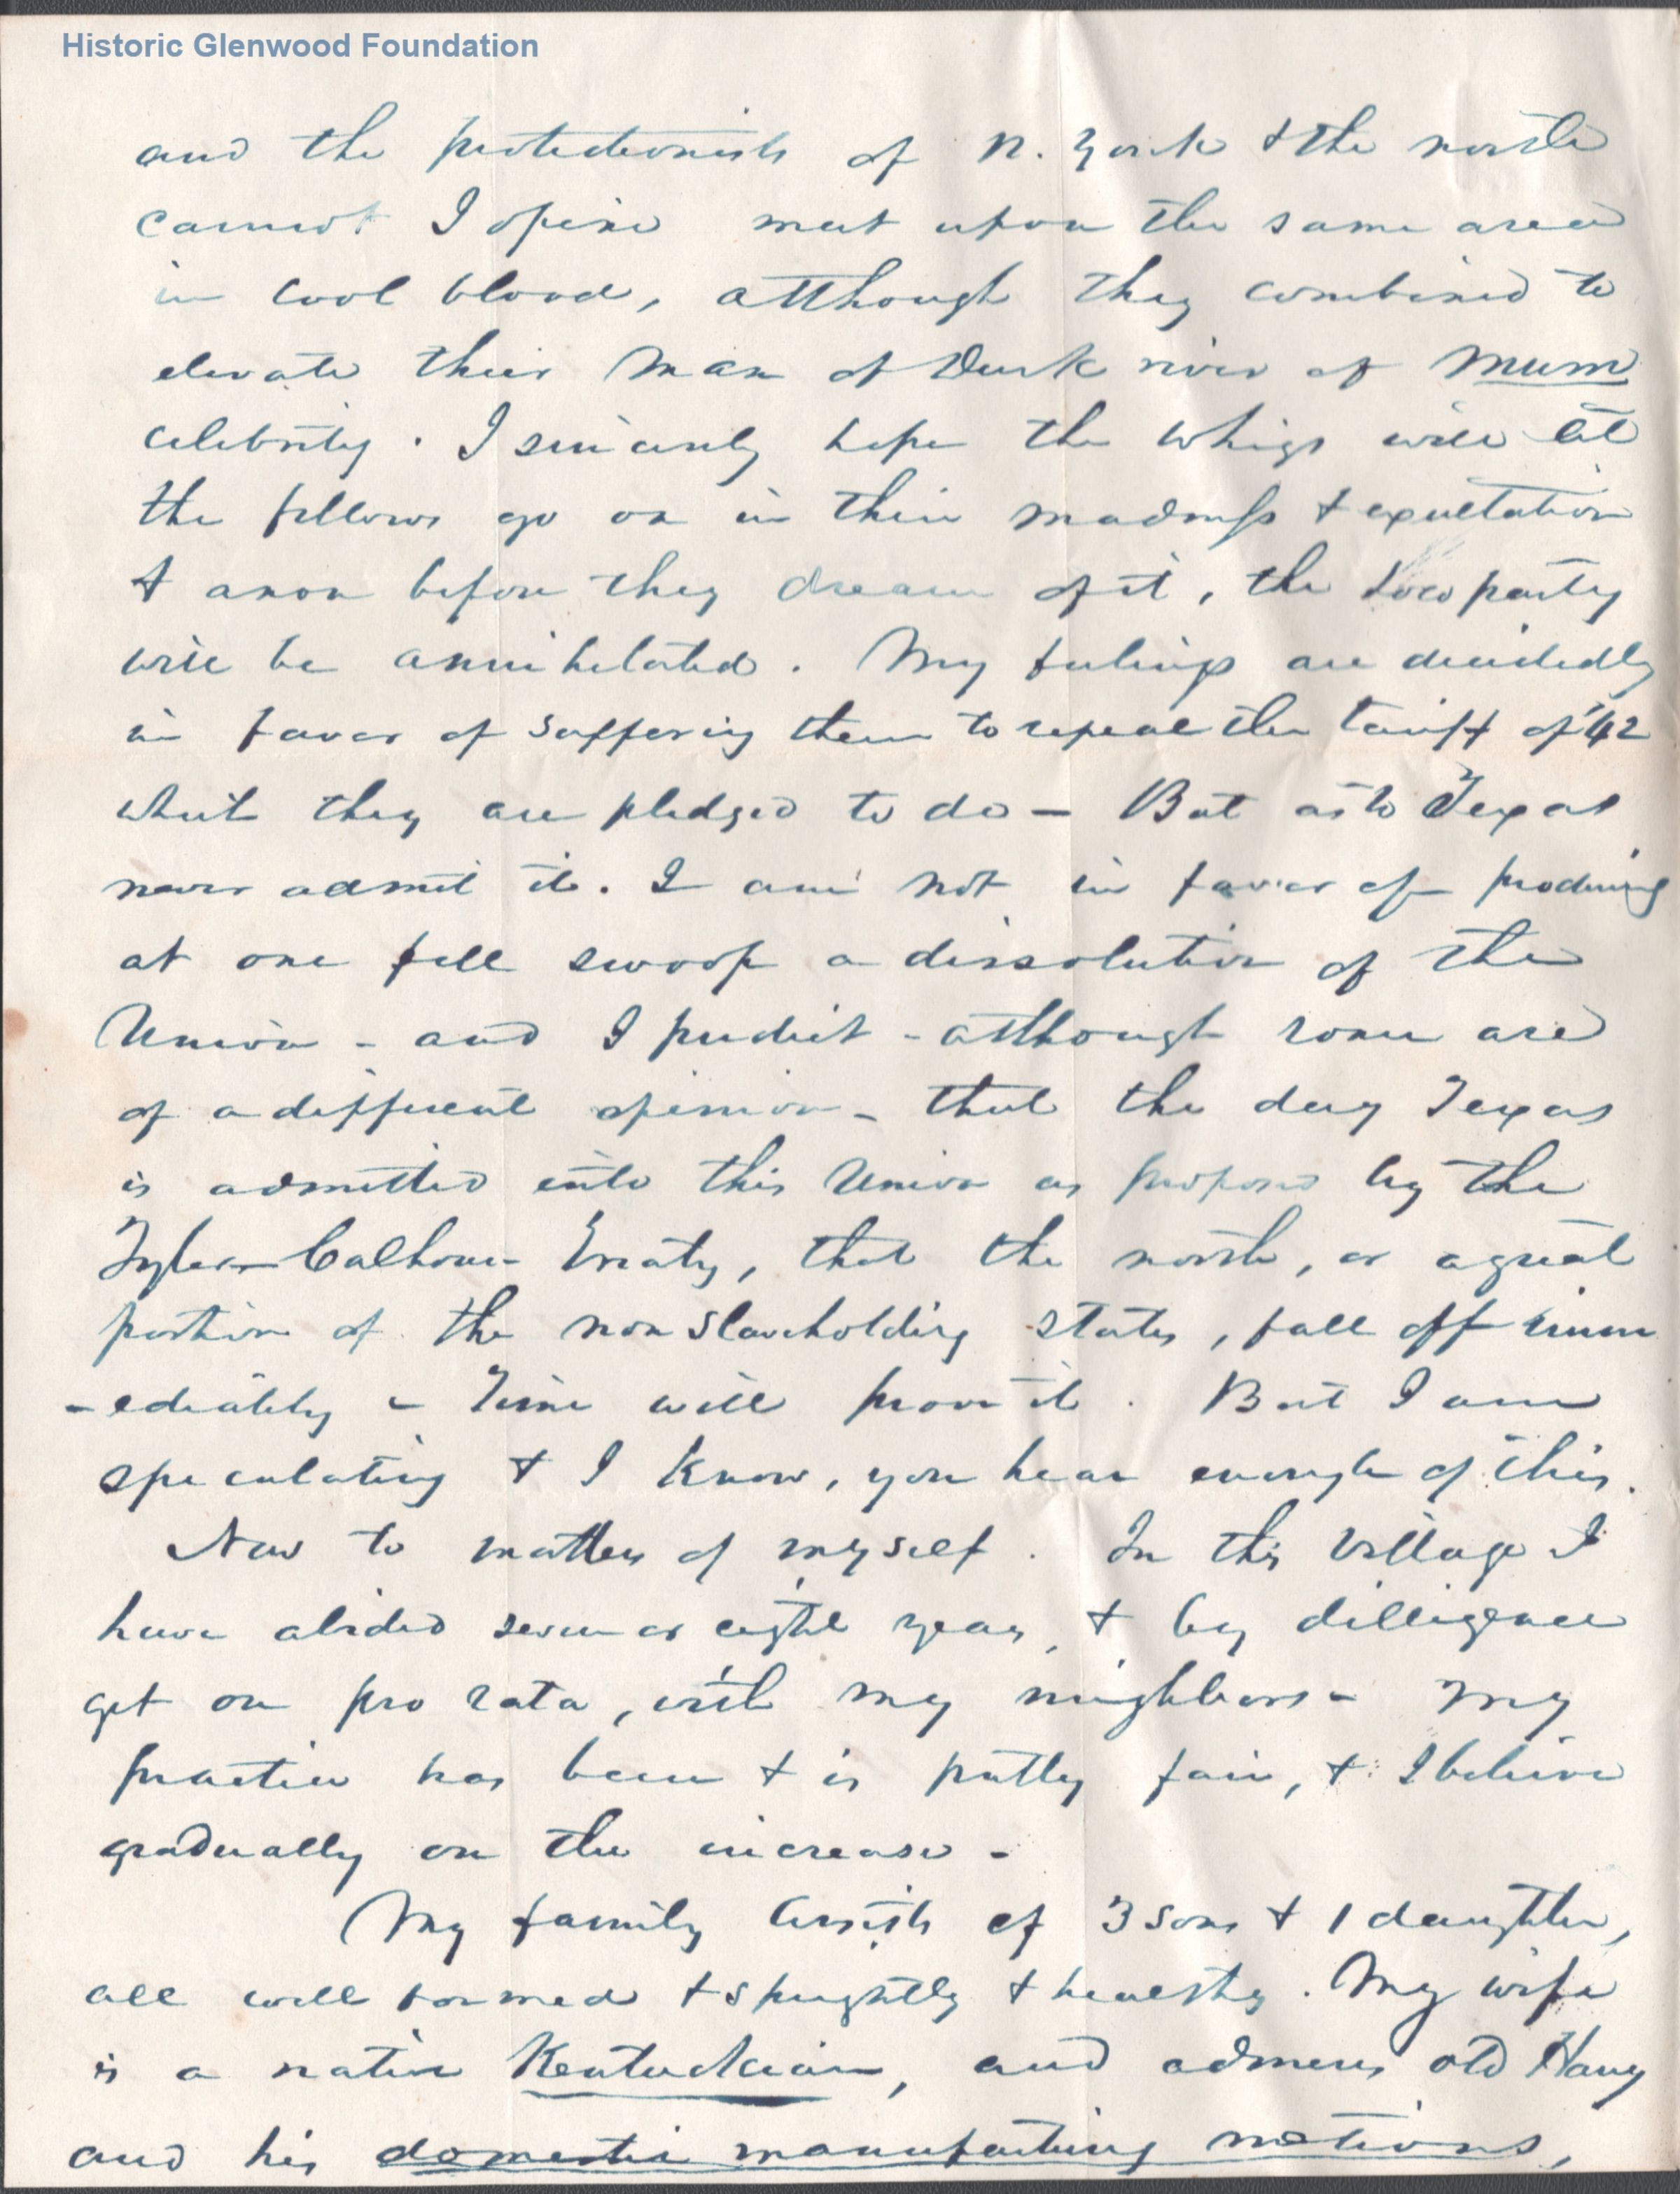 Historic Glenwood Foundation
and the protectionists of N. York & the north
cannot I opine meet upon the same area
in cool blood, although they combined to
elevate their Man of Duck river of Mum
celebrity. I sincerely hope the Whigs will let
the fellows go on in their madness & exultation
& anon before they dream of it, the Loco party
will be annihilated. My feelings are decidedly
in favor of suffering them to repeal the tariff of '42
what they are pledged to do — But as to Texas
never admit it. I am not in favor of producing
at one fell swoop a dissolution of the
Union - and I predict - although some are
of a different opinion - that the day Texas
is admitted into this Union as proposed by the
Tyler - Calhoun - treaty, that the north, or a great
portion of the non slaveholding states, fall off imm
-ediately - Time will prove it. But I am
speculating & I know, you hear enough of this.
Now to matters of myself. In this Village I
have abided seven or eight years, & by dilligence
get on pro rata, with my neighbors - My
practice has been & is prettly fair, & I believe
gradually on the increase -
My family consists of 3 sons & 1 daughter,
all well formed & sprightly & healthy. My wife
is a native Kentuckian, and admires old Harry
and his domestic manufacturing notions,